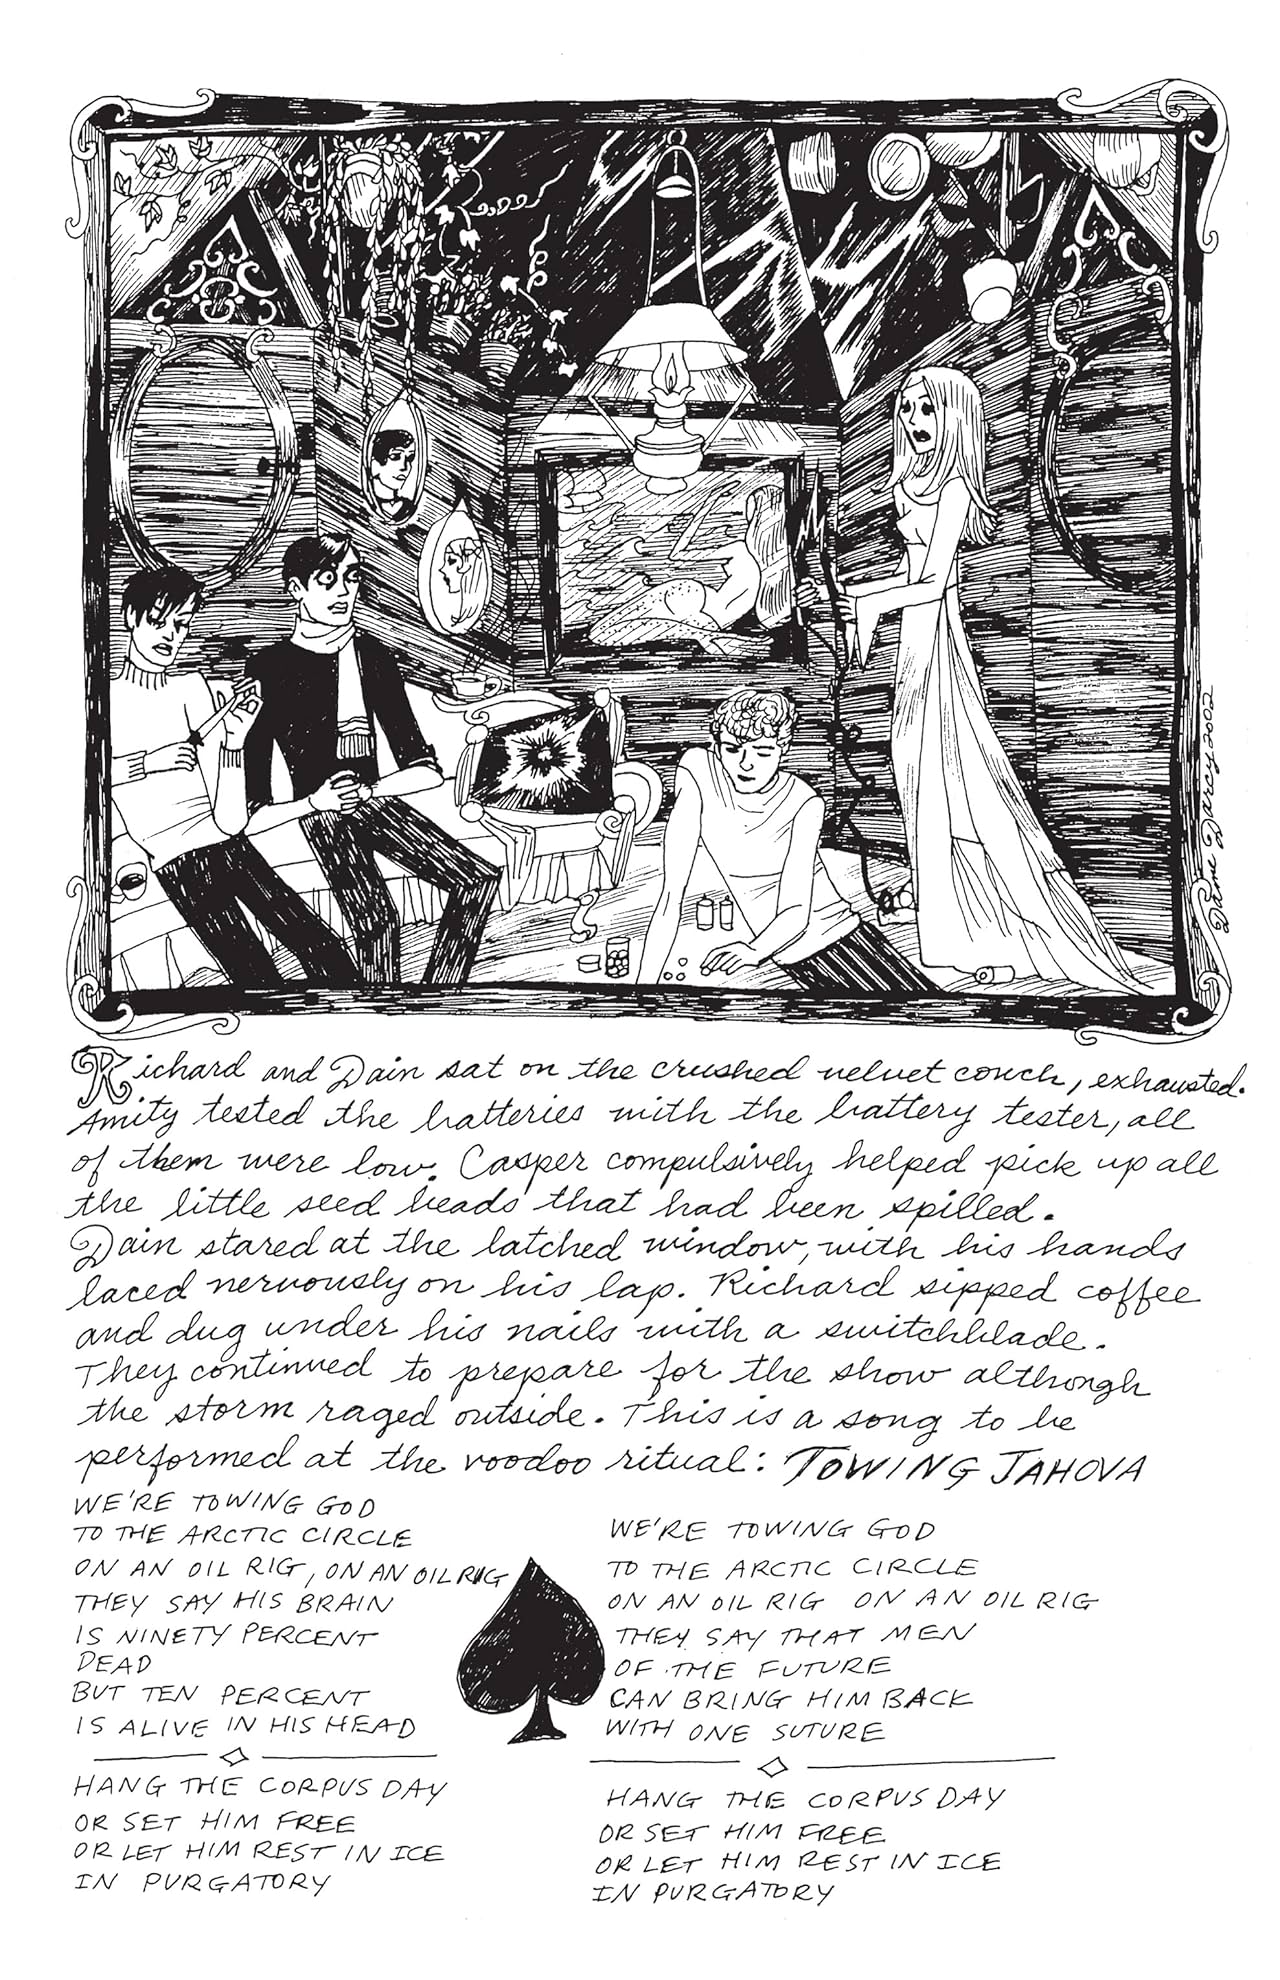 Dame Darcy 2002
Richard and Dain sat on the crushed velvet couch, exhausted.
Amity tested the batteries with the battery tester, all
of them were low. Casper compulsively helped pick up all
the little seed beads that had been spilled.
Dain stared at the latched window, with his hands
laced nervously on his lap. Richard sipped coffee
and dug under his nails with a switchblade.
They continued to prepare for the show although
the storm raged outside. This is a song to be
performed at the voodoo ritual: TOWING JAHOVA
WE'RE TOWING GOD
TO THE ARCTIC CIRCLE
ON AN OIL RIG, ON AN OIL RIG
THEY SAY HIS BRAIN
IS NINETY PERCENT
DEAD
BUT TEN PERCENT
IS ALIVE IN HIS HEAD
HANG THE CORPUS DAY
OR SET HIM FREE
OR LET HIM REST IN ICE
IN PURGATORY
WE'RE TOWING GOD
TO THE ARCTIC CIRCLE
ON AN OIL RIG ON AN OIL RIG
THEY SAY THAT MEN
OF THE FUTURE
CAN BRING HIM BACK
WITH ONE SUTURE
HANG THE CORPUS DAY
OR SET HIM FREE
OR LET HIM REST IN ICE
IN PURGATORY